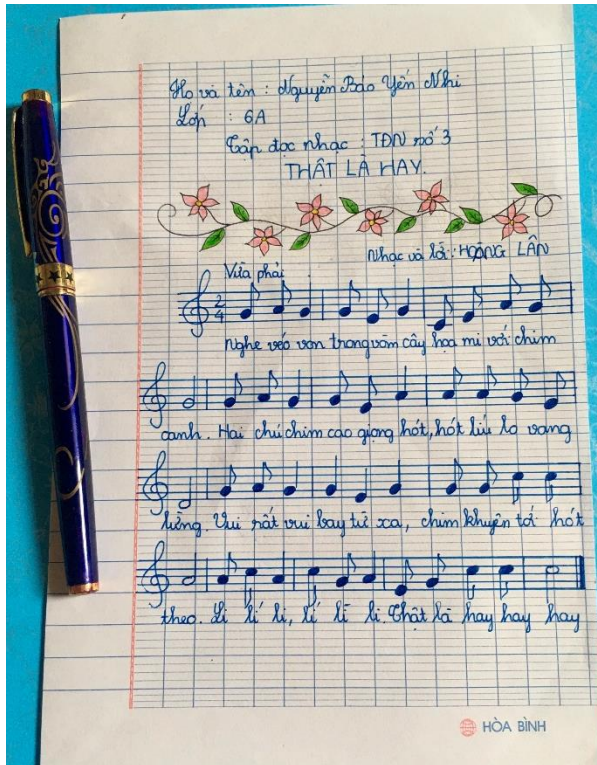 Họ và tên : Nguyễn Bảo Yến Nhi
Lớp : 6A
Tập đọc nhạc : TĐN số 3
THẬT LÀ HAY.
Nhạc và lời : HOÀNG LÂN
Vừa phải
2
4
Nghe véo von trong vòm cây họa mi với chim
oanh. Hai chú chim cao giọng hót, hót líu lo vang
lừng. Vui rất vui bay từ xa, chim khuyên tới hót
theo. Li lí li, lí lì li. Thật là hay hay hay
HÒA BÌNH